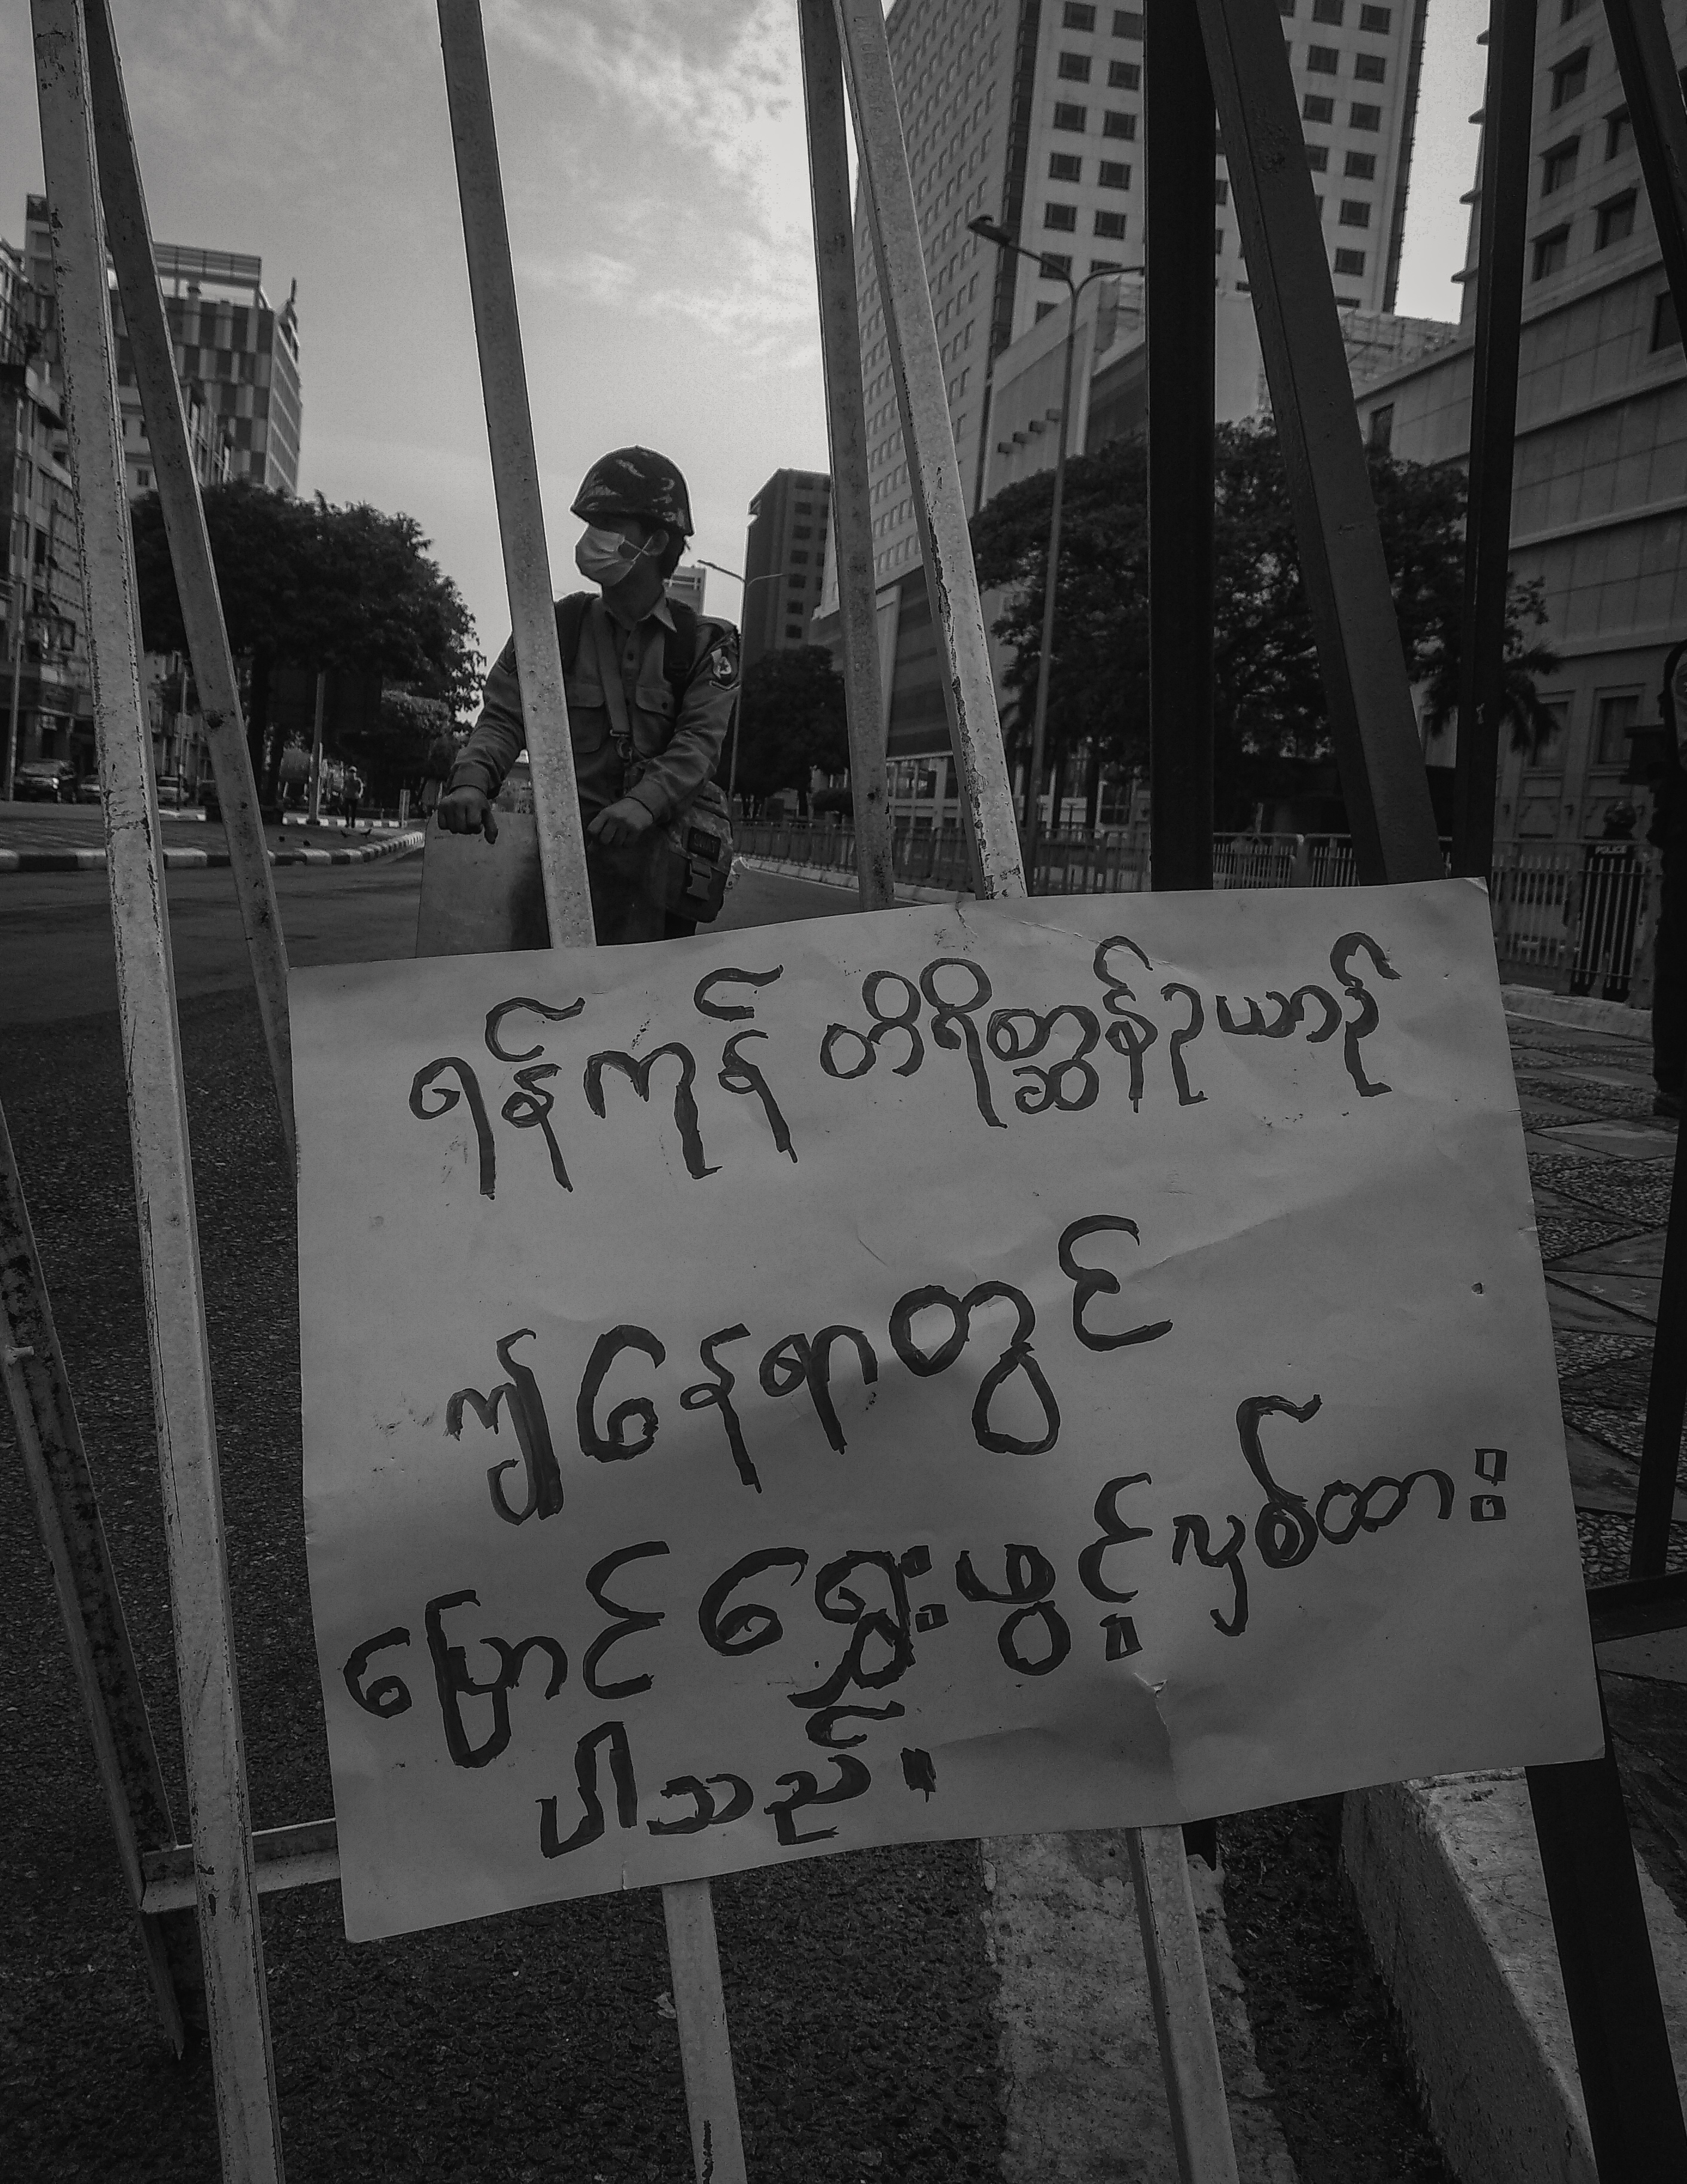 ရန်ကုန် တိရိစ္ဆာန်ဥယာဉ်
ကျုံနေရာတွင်
ပြောင်ရွှေ့ဖွင့်လှစ်ထား
ပါသည်။
POLICE